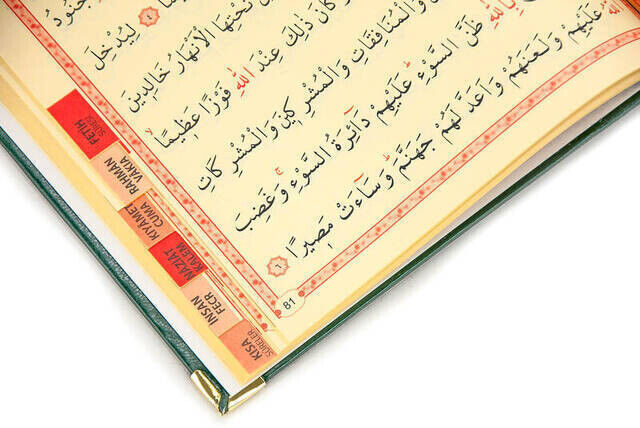 جُنُودُ
٤ لِيُدْخِلَ
تَحْتِهَا الْاَنْهَارُ خَالِدِينَ
كَانَ ذٰلِكَ عِنْدَ اللّٰهِ فَوْزًا عَظِيمًا
وَالْمُنَافِقَاتِ وَالْمُشْرِكِينَ وَالْمُشْرِكَاتِ
بِاللّٰهِ ظَنَّ السَّوْءِ عَلَيْهِمْ دَٓائِرَةُ السَّوْءِ وَغَضِبَ
عَلَيْهِمْ وَلَعَنَهُمْ وَاَعَدَّ لَهُمْ جَهَنَّمَ وَسَٓاءَتْ مَصِيرًا ٦
81
FETİH
SURESİ
RAHMAN
VAKIA
KIYAMET
CUMA
NAZİAT
KALEM
İNSAN
FECR
KISA
SURELER